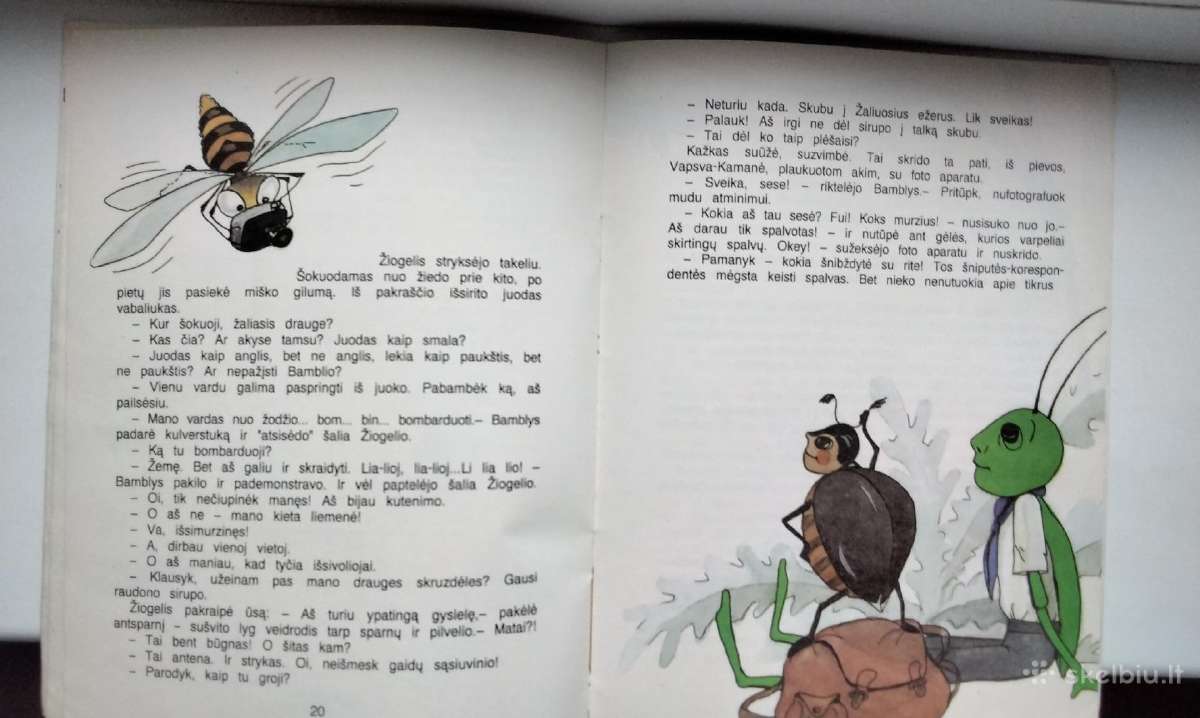 Žiogelis stryksėjo takeliu.
Šokuodamas nuo žiedo prie kito, po
pietų jis pasiekė miško gilumą. Iš pakraščio išsirito juodas
vabaliukas.
– Kur šokuoji, žaliasis drauge?
– Kas čia? Ar akyse tamsu? Juodas kaip smala?
– Juodas kaip anglis, bet ne anglis, lekia kaip paukštis, bet
ne paukštis? Ar nepažįsti Bamblio?
– Vienu vardu galima paspringti iš juoko. Pabambėk ką, aš
pailsėsiu.
– Mano vardas nuo žodžio... bom... bin... bombarduoti.– Bamblys
padarė kulverstuką ir "atsisėdo" šalia Žiogelio.
– Ką tu bombarduoji?
– Žemę. Bet aš galiu ir skraidyti. Lia-lioj, lia-lioj...Li lia lio! –
Bamblys pakilo ir pademonstravo. Ir vėl paptelėjo šalia Žiogelio.
– Oi, tik nečiupinėk manęs! Aš bijau kutenimo.
– O aš ne – mano kieta liemenė!
– Va, išsimurzinęs!
– A, dirbau vienoj vietoj.
– O aš maniau, kad tyčia išsivoliojai.
– Klausyk, užeinam pas mano drauges skruzdėles? Gausi
raudono sirupo.
Žiogelis pakraipė ūsą: – Aš turiu ypatingą gysielę,– pakėlė
antsparnį – sušvito lyg veidrodis tarp sparnų ir pilvelio.– Matai?!
– Tai bent būgnas! O šitas kam?
– Tai antena. Ir strykas. Oi, neišmesk gaidų sąsiuvinio!
– Parodyk, kaip tu groji?
20
– Neturiu kada. Skubu į Žaliuosius ežerus. Lik sveikas!
– Palauk! Aš irgi ne dėl sirupo į talką skubu.
– Tai dėl ko taip plėšaisi?
Kažkas suūžė, suzvimbė. Tai skrido ta pati, iš pievos,
Vapsva-Kamanė, plaukuotom akim, su foto aparatu.
– Sveika, sese! – riktelėjo Bamblys.– Pritūpk, nufotografuok
mudu atminimui.
– Kokia aš tau sesė? Fui! Koks murzius! – nusisuko nuo jo.–
Aš darau tik spalvotas! – ir nutūpė ant gėlės, kurios varpeliai
skirtingų spalvų. Okey! – sužeksėjo foto aparatu ir nuskrido.
– Pamanyk – kokia šnibždytė su rite! Tos šniputės-korespon-
dentės mėgsta keisti spalvas. Bet nieko nenutuokia apie tikrus
skelbiu.lt